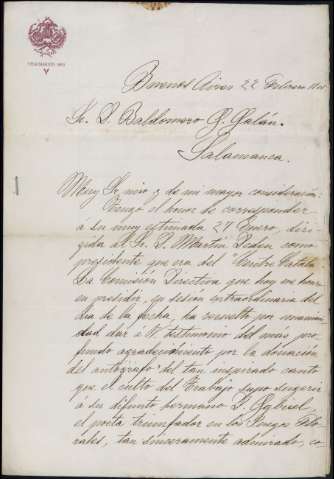 Buenos Aires 22 Febrero
Sr. D. Baldomero G. Galán.
Salamanca.
Muy Sr. mio y de mi mayor consideración
Tengo el honor de corresponder
á su muy estimada 27 Enero, diri-
gida al Sr. D. Martin Deden como
presidente que era del "Centre Catalá"
La Comisión Directiva que hoy me hon-
ro en presidir, en sesión extraordinaria del
dia de la fecha, ha resuelto por unanimi-
dad dar á V. testimonio del más pro-
fundo agradecimiento por la donación
del autógrafo del tan inspirado canto
que el culto del Trabajo supo sugerir
á su difunto hermano D. Gabriel
el poeta triunfador en los Juegos Flo-
rales, tan sinceramente admirado, co-